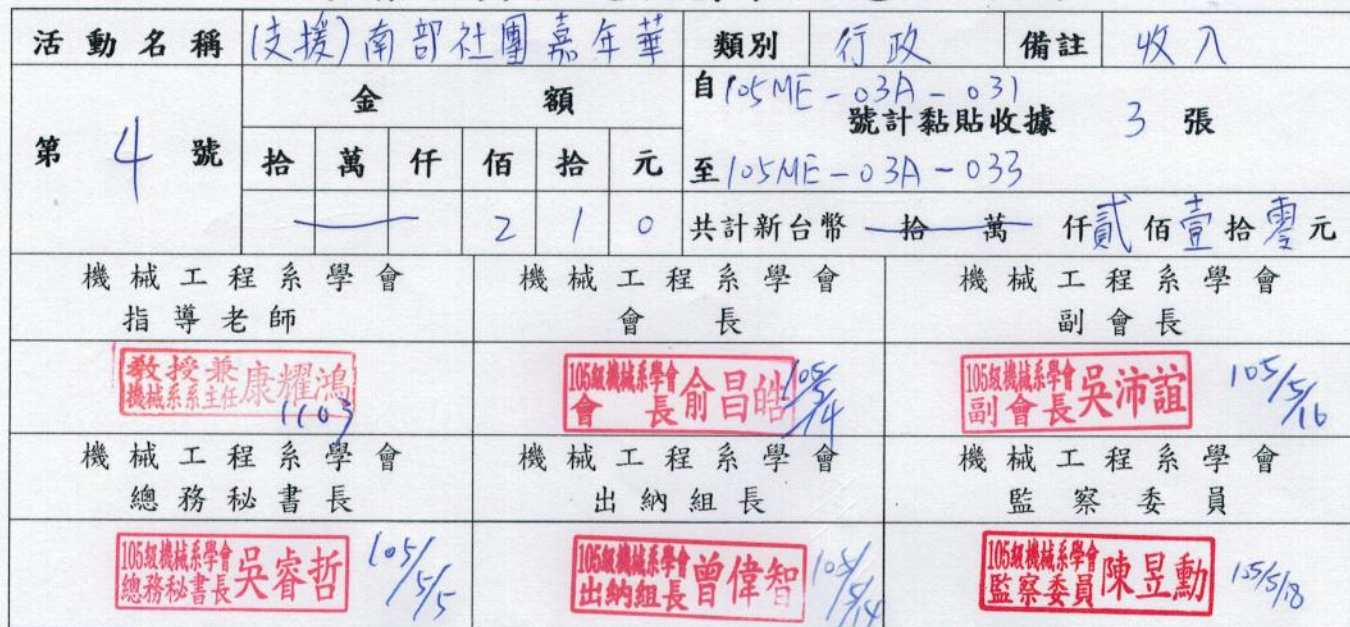 活動名稱 (支援)南部社團嘉年華 類別 行政 備註 收入
第 4 號
金額
拾 萬 仟 佰 拾 元
2 1 0
自105ME-03A-031
號計黏貼收據 3 張
至105ME-03A-033
共計新台幣 拾 萬 仟貳佰壹拾零元
機械工程系學會 機械工程系學會 機械工程系學會
指導老師 會長 副會長
教授兼
機械系系主任 康耀鴻
1103
105級機械系學會
會長 俞昌皓 105/5/14
105級機械系學會
副會長 吳沛誼 105/5/16
機械工程系學會 機械工程系學會 機械工程系學會
總務秘書長 出納組長 監察委員
105級機械系學會
總務秘書長 吳睿哲 105/5/5
105級機械系學會
出納組長 曾偉智 105/5/14
105級機械系學會
監察委員 陳昱勳 105/5/18